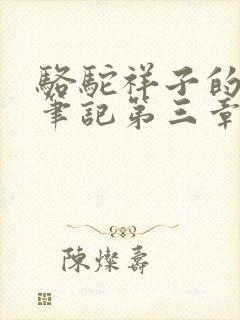 駱駝祥子的
筆記第三章
陳燦壽